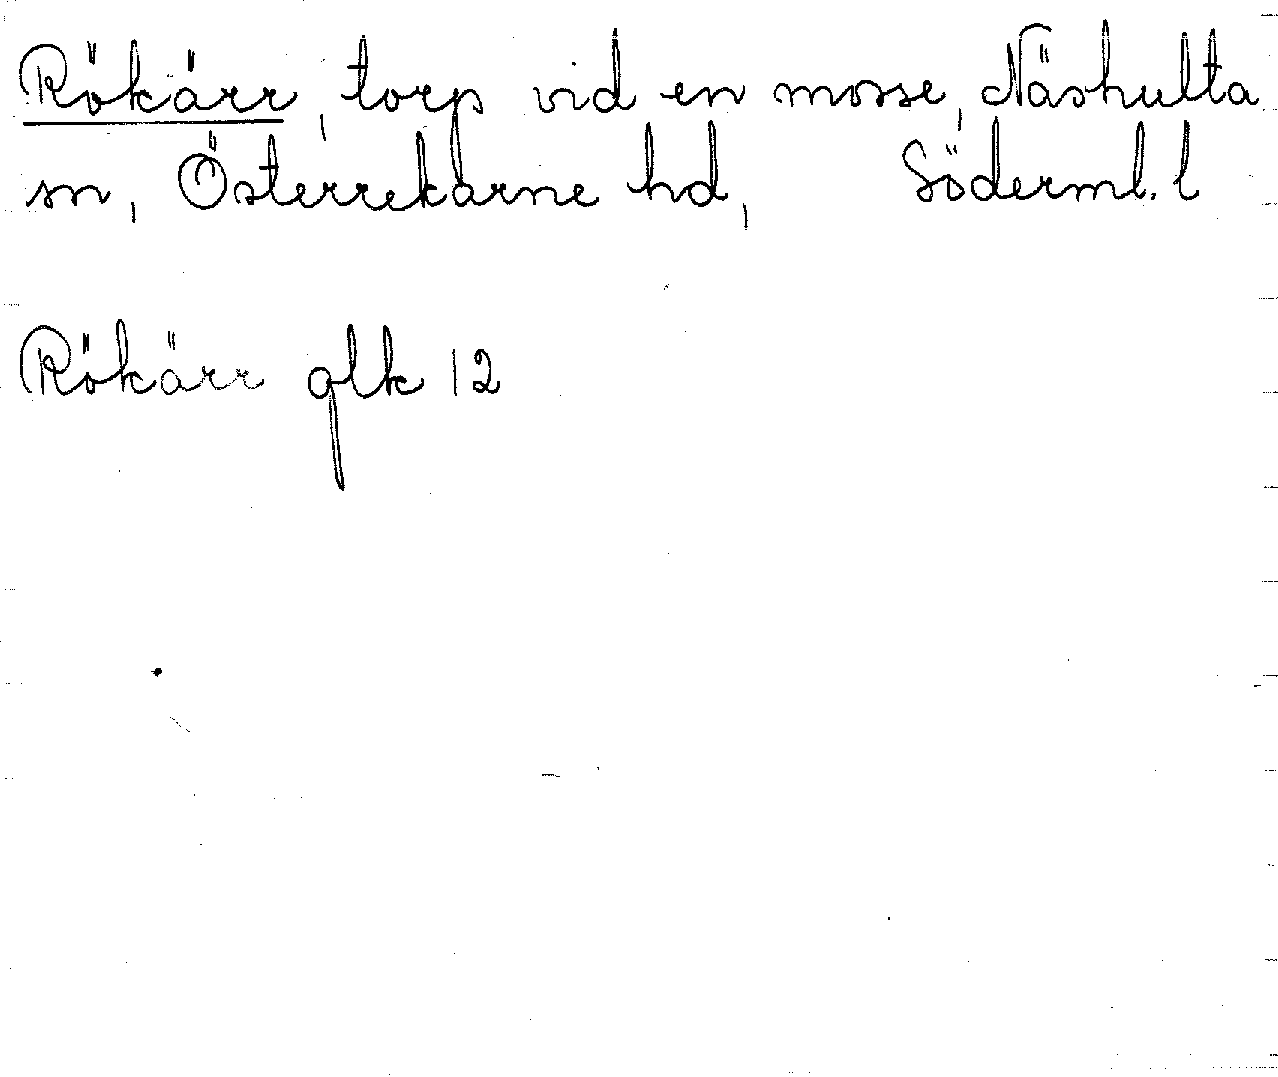 Rökärr, torp vid en mosse, Näshulta
sn, Österrekarne hd, Söderml. l
Rökärr glk 12